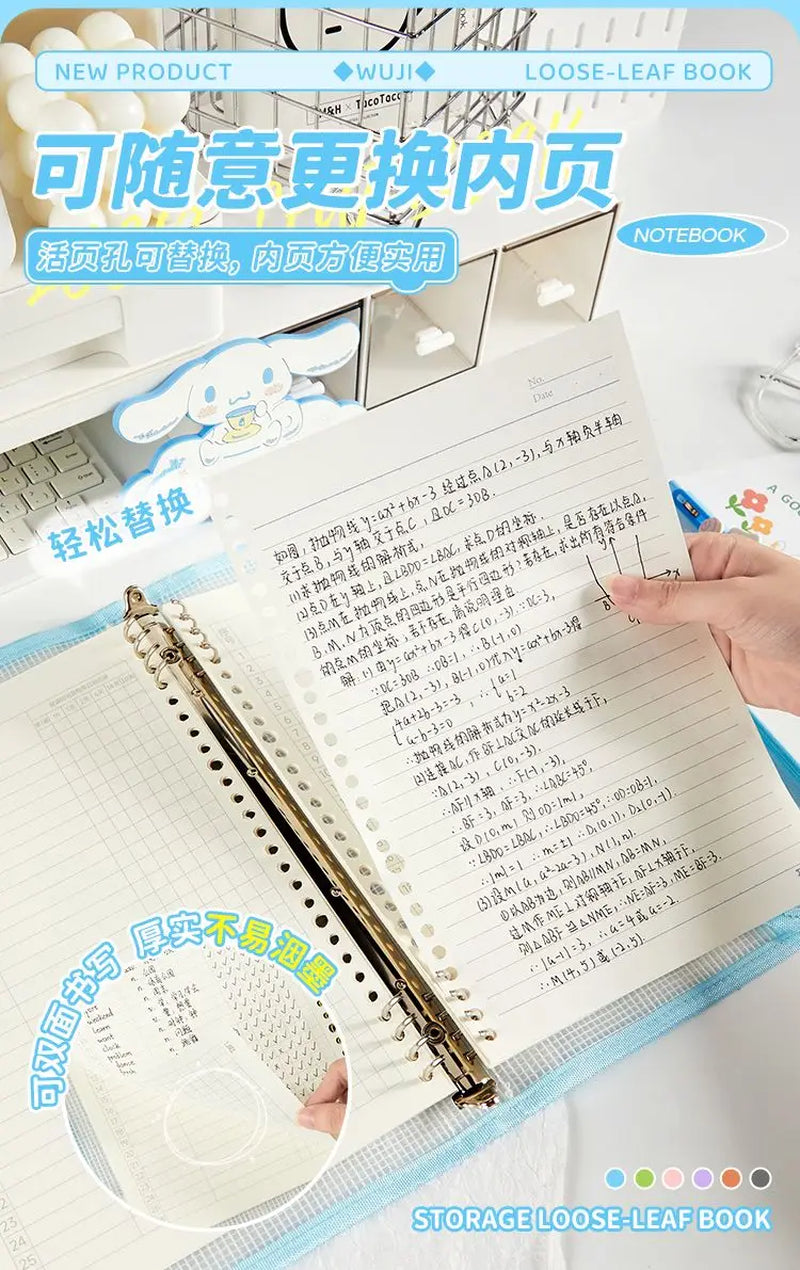 NEW PRODUCT
◆WUJI◆
LOOSE-LEAF BOOK
M&H × TucoTaco
可随意更换内页
活页孔可替换，内页方便实用
NOTEBOOK
No.
Date
轻松替换
如图，抛物线y=ax²+bx-3经过点A(2,-3)，与x轴负半轴
交于点B，与y轴交于点C，且OC=3OB.
(1)求抛物线的解析式,
(2)点D在y轴上，且∠BDO=∠BAC，求点D的坐标.
(3)点M在抛物线上，点N在抛物线的对称轴上，是否存在以点A,
B,M,N为顶点的四边形是平行四边形?若存在，求出所有符合条件
的点M的坐标，若不存在，请说明理由
解:(1)由y=ax²+bx-3得C(0,-3) ∴OC=3,
∵OC=3OB ∴OB=1, ∴B(-1,0)
把A(2,-3),B(-1,0)代入y=ax²+bx-3得
{4a+2b-3=-3
a-b-3=0
∴ {a=1
b=2
∴抛物线的解析式为y=x²-2x-3
(2)连接AC,作BF⊥AC交AC的延长线于F,
∵A(2,-3), C(0,-3).
∴AF∥x轴 ∴F(-1,-3),
∴BF=3, AF=3, ∴∠BAC=45°
设D(0,m) 则OD=|m|,
∵∠BDO=∠BAC, ∴∠BDO=45°, ∴OD=OB=1,
∴|m|=1 ∴m=±1 ∴D₁(0,1), D₂(0,-1).
(3)设M(a,a²-2a-3), N(1,n).
①以AB为边，则AB∥MN, AB=MN,
过M作ME⊥对称轴于E, AF⊥x轴于F,
则△ABF≌△NME, ∴NE=AF=3, ME=BF=3.
∴|a-1|=3, ∴a=4或a=-2.
∴M(4,5)或(-2,5)
可双面书写 厚实不易洇墨
weekend
learn
want
clock
problem
23
24
25
STORAGE LOOSE-LEAF BOOK